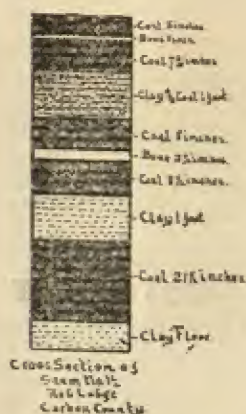 Coal 5 inches
Bone 1 inch
Coal 7½ inches
Clay & Coal 1 foot
Coal 8 inches.
Bone 3½ inches
Coal 8½ inches.
Clay 1 foot
Coal 21½ inches
Clay Floor
Cross Section of
Seam
Red Lodge
Carbon County